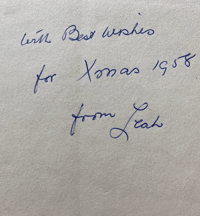 With Best Wishes
for Xmas 1958
from Leah